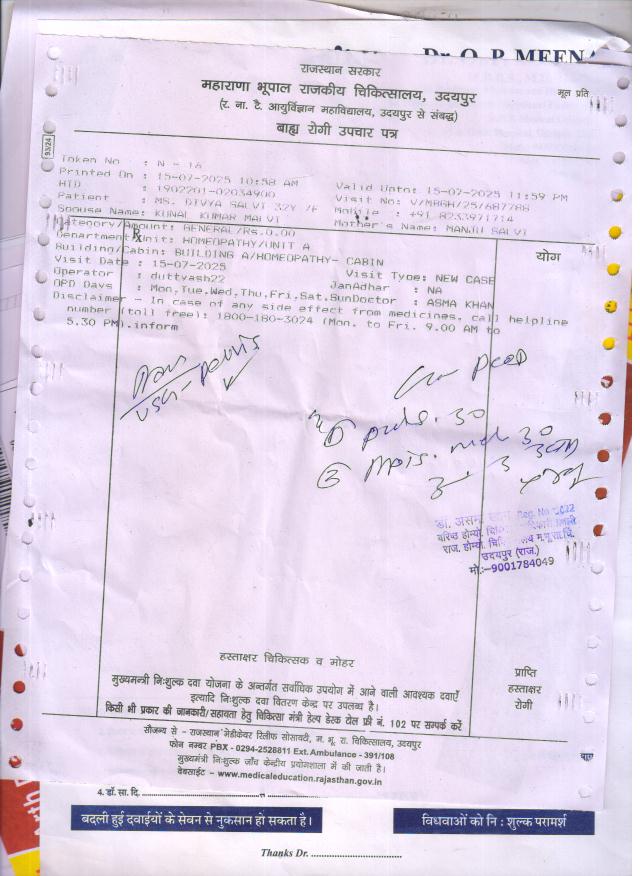 Dr. O. P. MEENA
राजस्थान सरकार
महाराणा भूपाल राजकीय चिकित्सालय, उदयपुर
मूल प्रति
(र. ना. टै. आयुर्विज्ञान महाविद्यालय, उदयपुर से संबद्ध)
बाह्य रोगी उपचार पत्र
93/24
Token No : N - 16
Printed On : 15-07-2025 10:58 AM Valid Upto: 15-07-2025 11:59 PM
HID : 1902201-02034900 Visit No: V/MBGH/25/687788
Patient : MS. DIVYA SALVI 32Y /F Mobile : +91 8233971714
Spouse Name: KUNAL KUMAR MALVI Mother's Name: MANJU SALVI
Category/Amount: GENERAL/Rs.0.00
Department/Unit: HOMEOPATHY/UNIT A
योग
Building/Cabin: BUILDING A/HOMEOPATHY- CABIN
Visit Date : 15-07-2025 Visit Type: NEW CASE
Operator : duttvash22 JanAdhar : NA
OPD Days : Mon,Tue,Wed,Thu,Fri,Sat,Sun Doctor : ASMA KHAN
Disclaimer - In case of any side effect from medicines, call helpline
number (toll free): 1800-180-3024 (Mon. to Fri. 9.00 AM to
5.30 PM).inform
Adv
USG - pelvis
puls. 30
30
3 3
डॉ. असमा Reg. No
वरिष्ठ होम्यो.
राज. होम्यो.
उदयपुर (राज.)
मो:-9001784049
हस्ताक्षर चिकित्सक व मोहर
मुख्यमन्त्री निःशुल्क दवा योजना के अन्तर्गत सर्वाधिक उपयोग में आने वाली आवश्यक दवाएँ
इत्यादि निःशुल्क दवा वितरण केन्द्र पर उपलब्ध है।
किसी भी प्रकार की जानकारी/सहायता हेतु चिकित्सा मंत्री हेल्प डेस्क टोल फ्री नं. 102 पर सम्पर्क करें
प्राप्ति
हस्ताक्षर
रोगी
सौजन्य से - राजस्थान मेडीकेयर रिलीफ सोसायटी, म. भू. रा. चिकित्सालय, उदयपुर
फोन नम्बर PBX - 0294-2528811 Ext. Ambulance - 391/108
मुख्यमंत्री निःशुल्क जाँच केन्द्रीय प्रयोगशाला में की जाती है।
वेबसाईट - www.medicaleducation.rajasthan.gov.in
4. डॉ. सा. दि.
बदली हुई दवाईयों के सेवन से नुकसान हो सकता है।
विधवाओं को नि : शुल्क परामर्श
Thanks Dr.